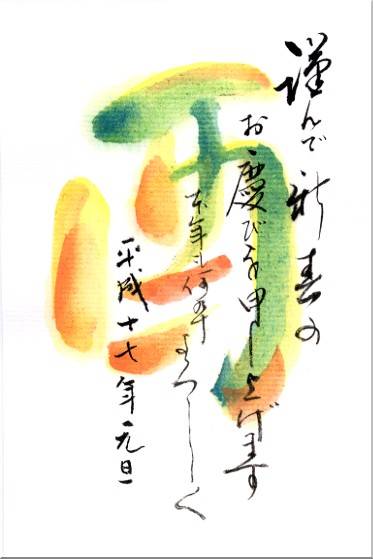 謹んで新春の
お慶びを申し上げます
本年も何卒
よろしく
平成十七年元旦